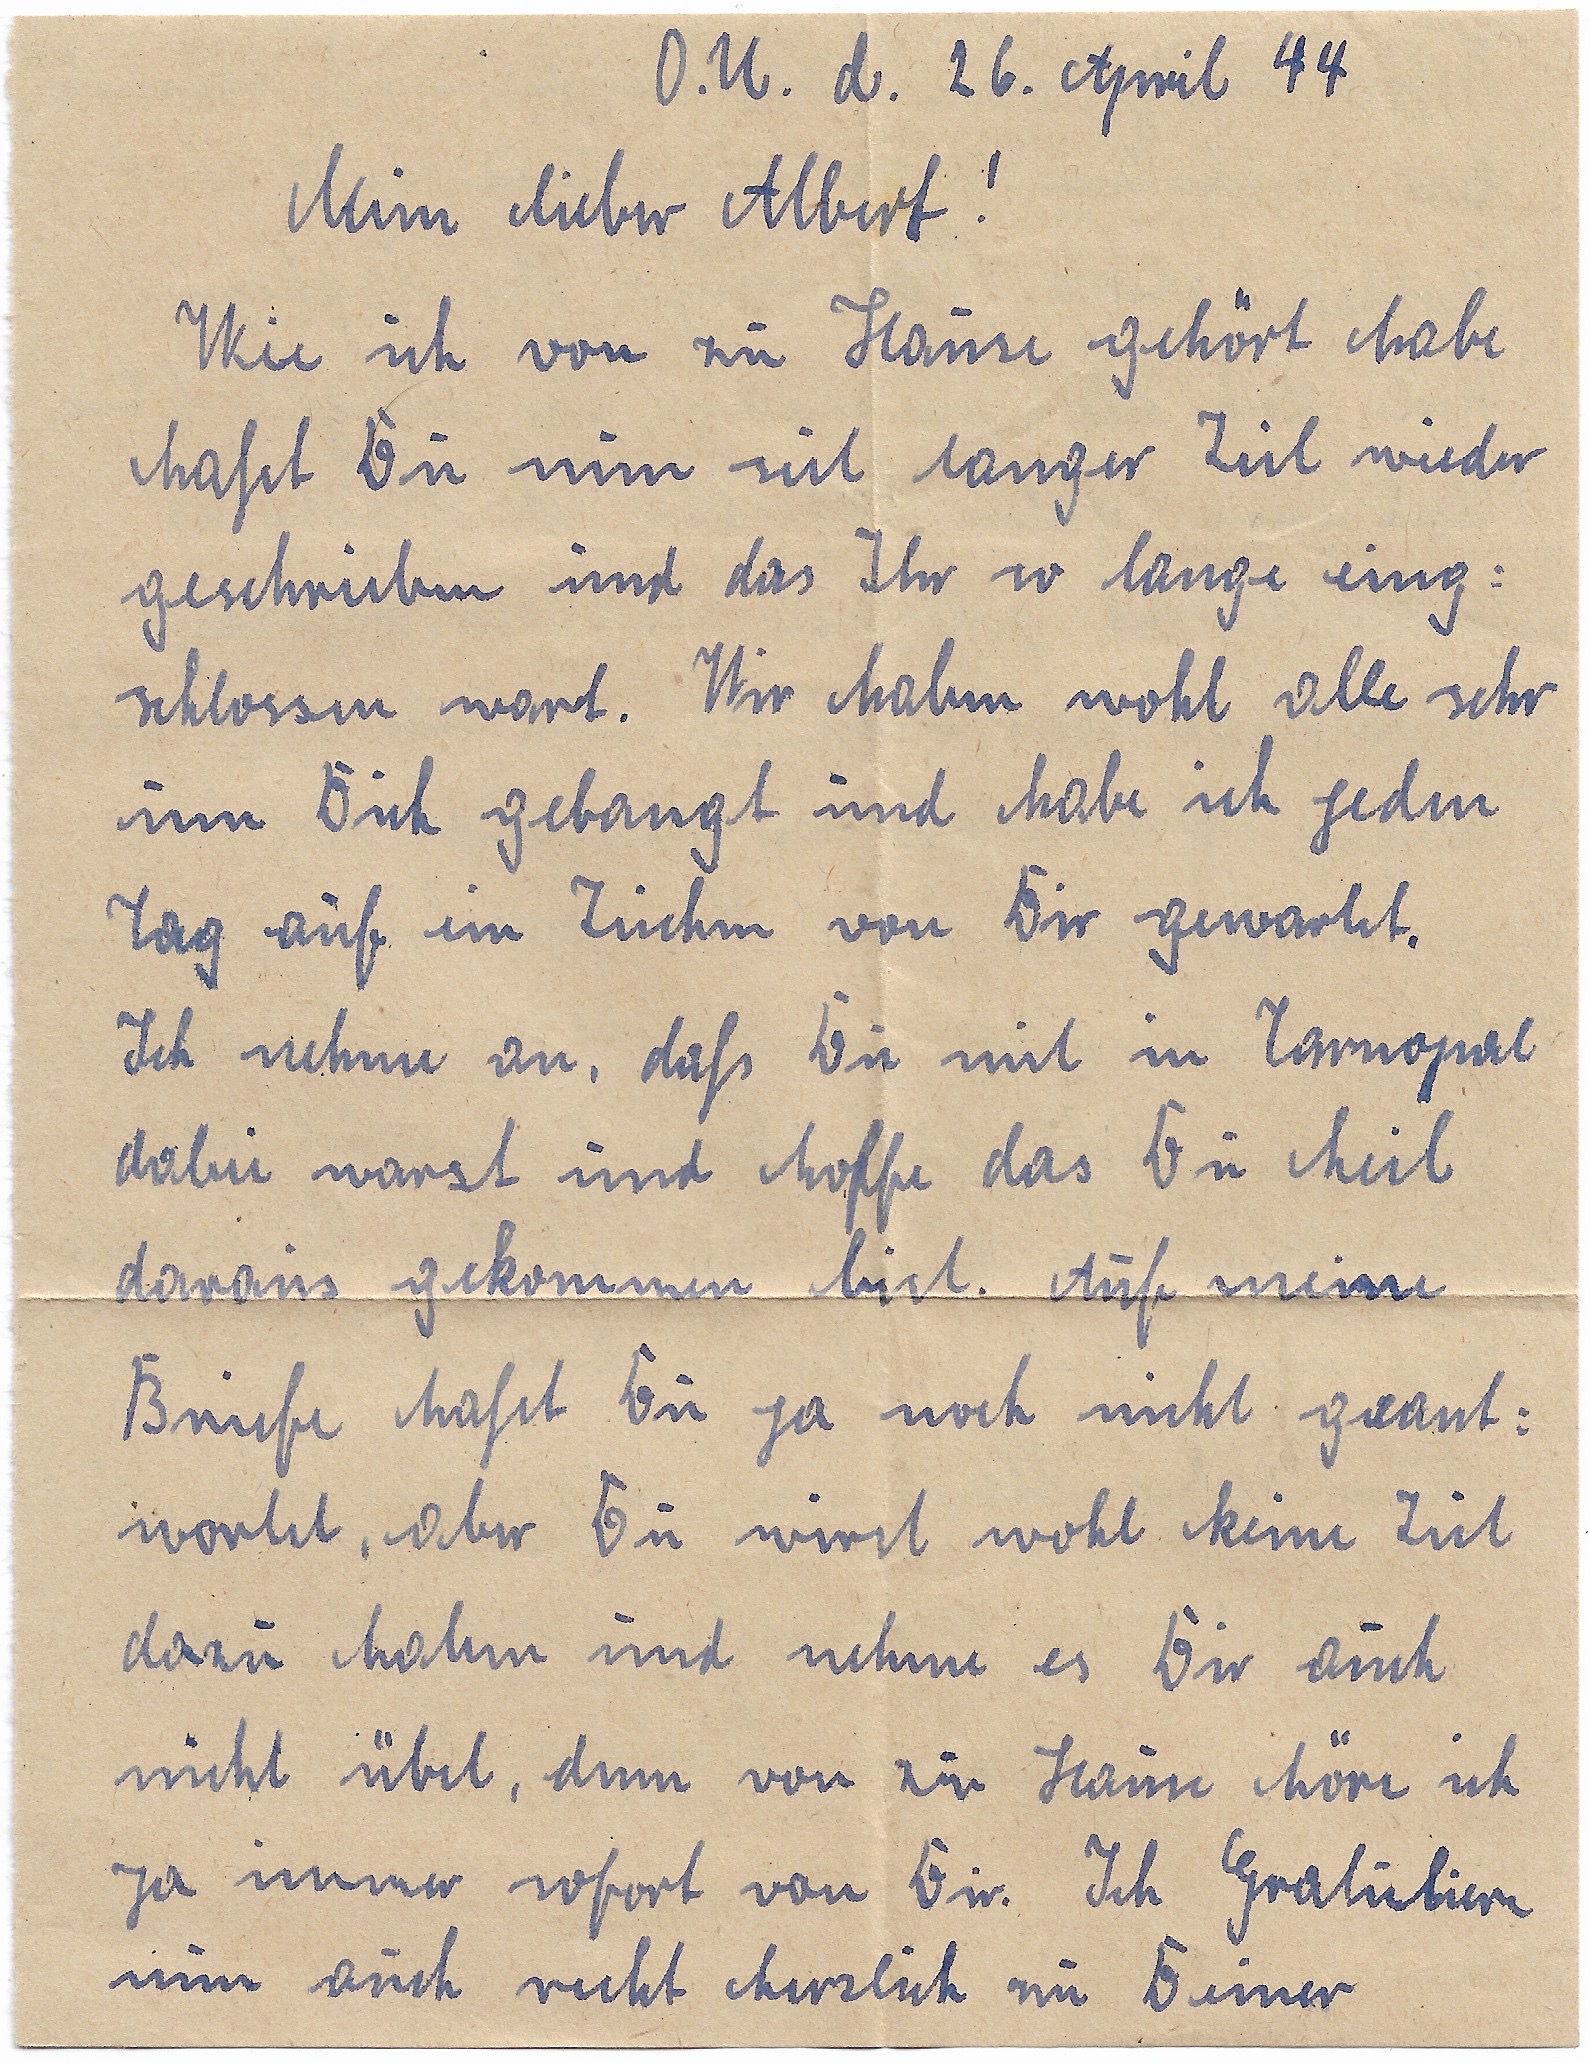 O.U. d. 26. April 44
Mein lieber Albert!
Wie ich von zu Hause gehört habe
haßt Du nun seit langer Zeit wieder
geschrieben und das Ihr so lange eing:
schlossen wart. Wir haben wohl alle sehr
um Dich gebangt und habe ich jeden
Tag auf ein Zeichen von Dir gewartet.
Ich nehme an, daß Du mit in Tarnopol
dabei warst und hoffe das Du heil
daraus gekommen bist. Auf meine
Briefe haßt Du ja noch nicht geant:
wortet, aber Du wirst wohl keine Zeit
dazu haben und nehme es Dir auch
nicht übel, denn von zu Hause höre ich
ja immer sofort von Dir. Ich Gratuliere
nun auch recht herzlich zu Deiner